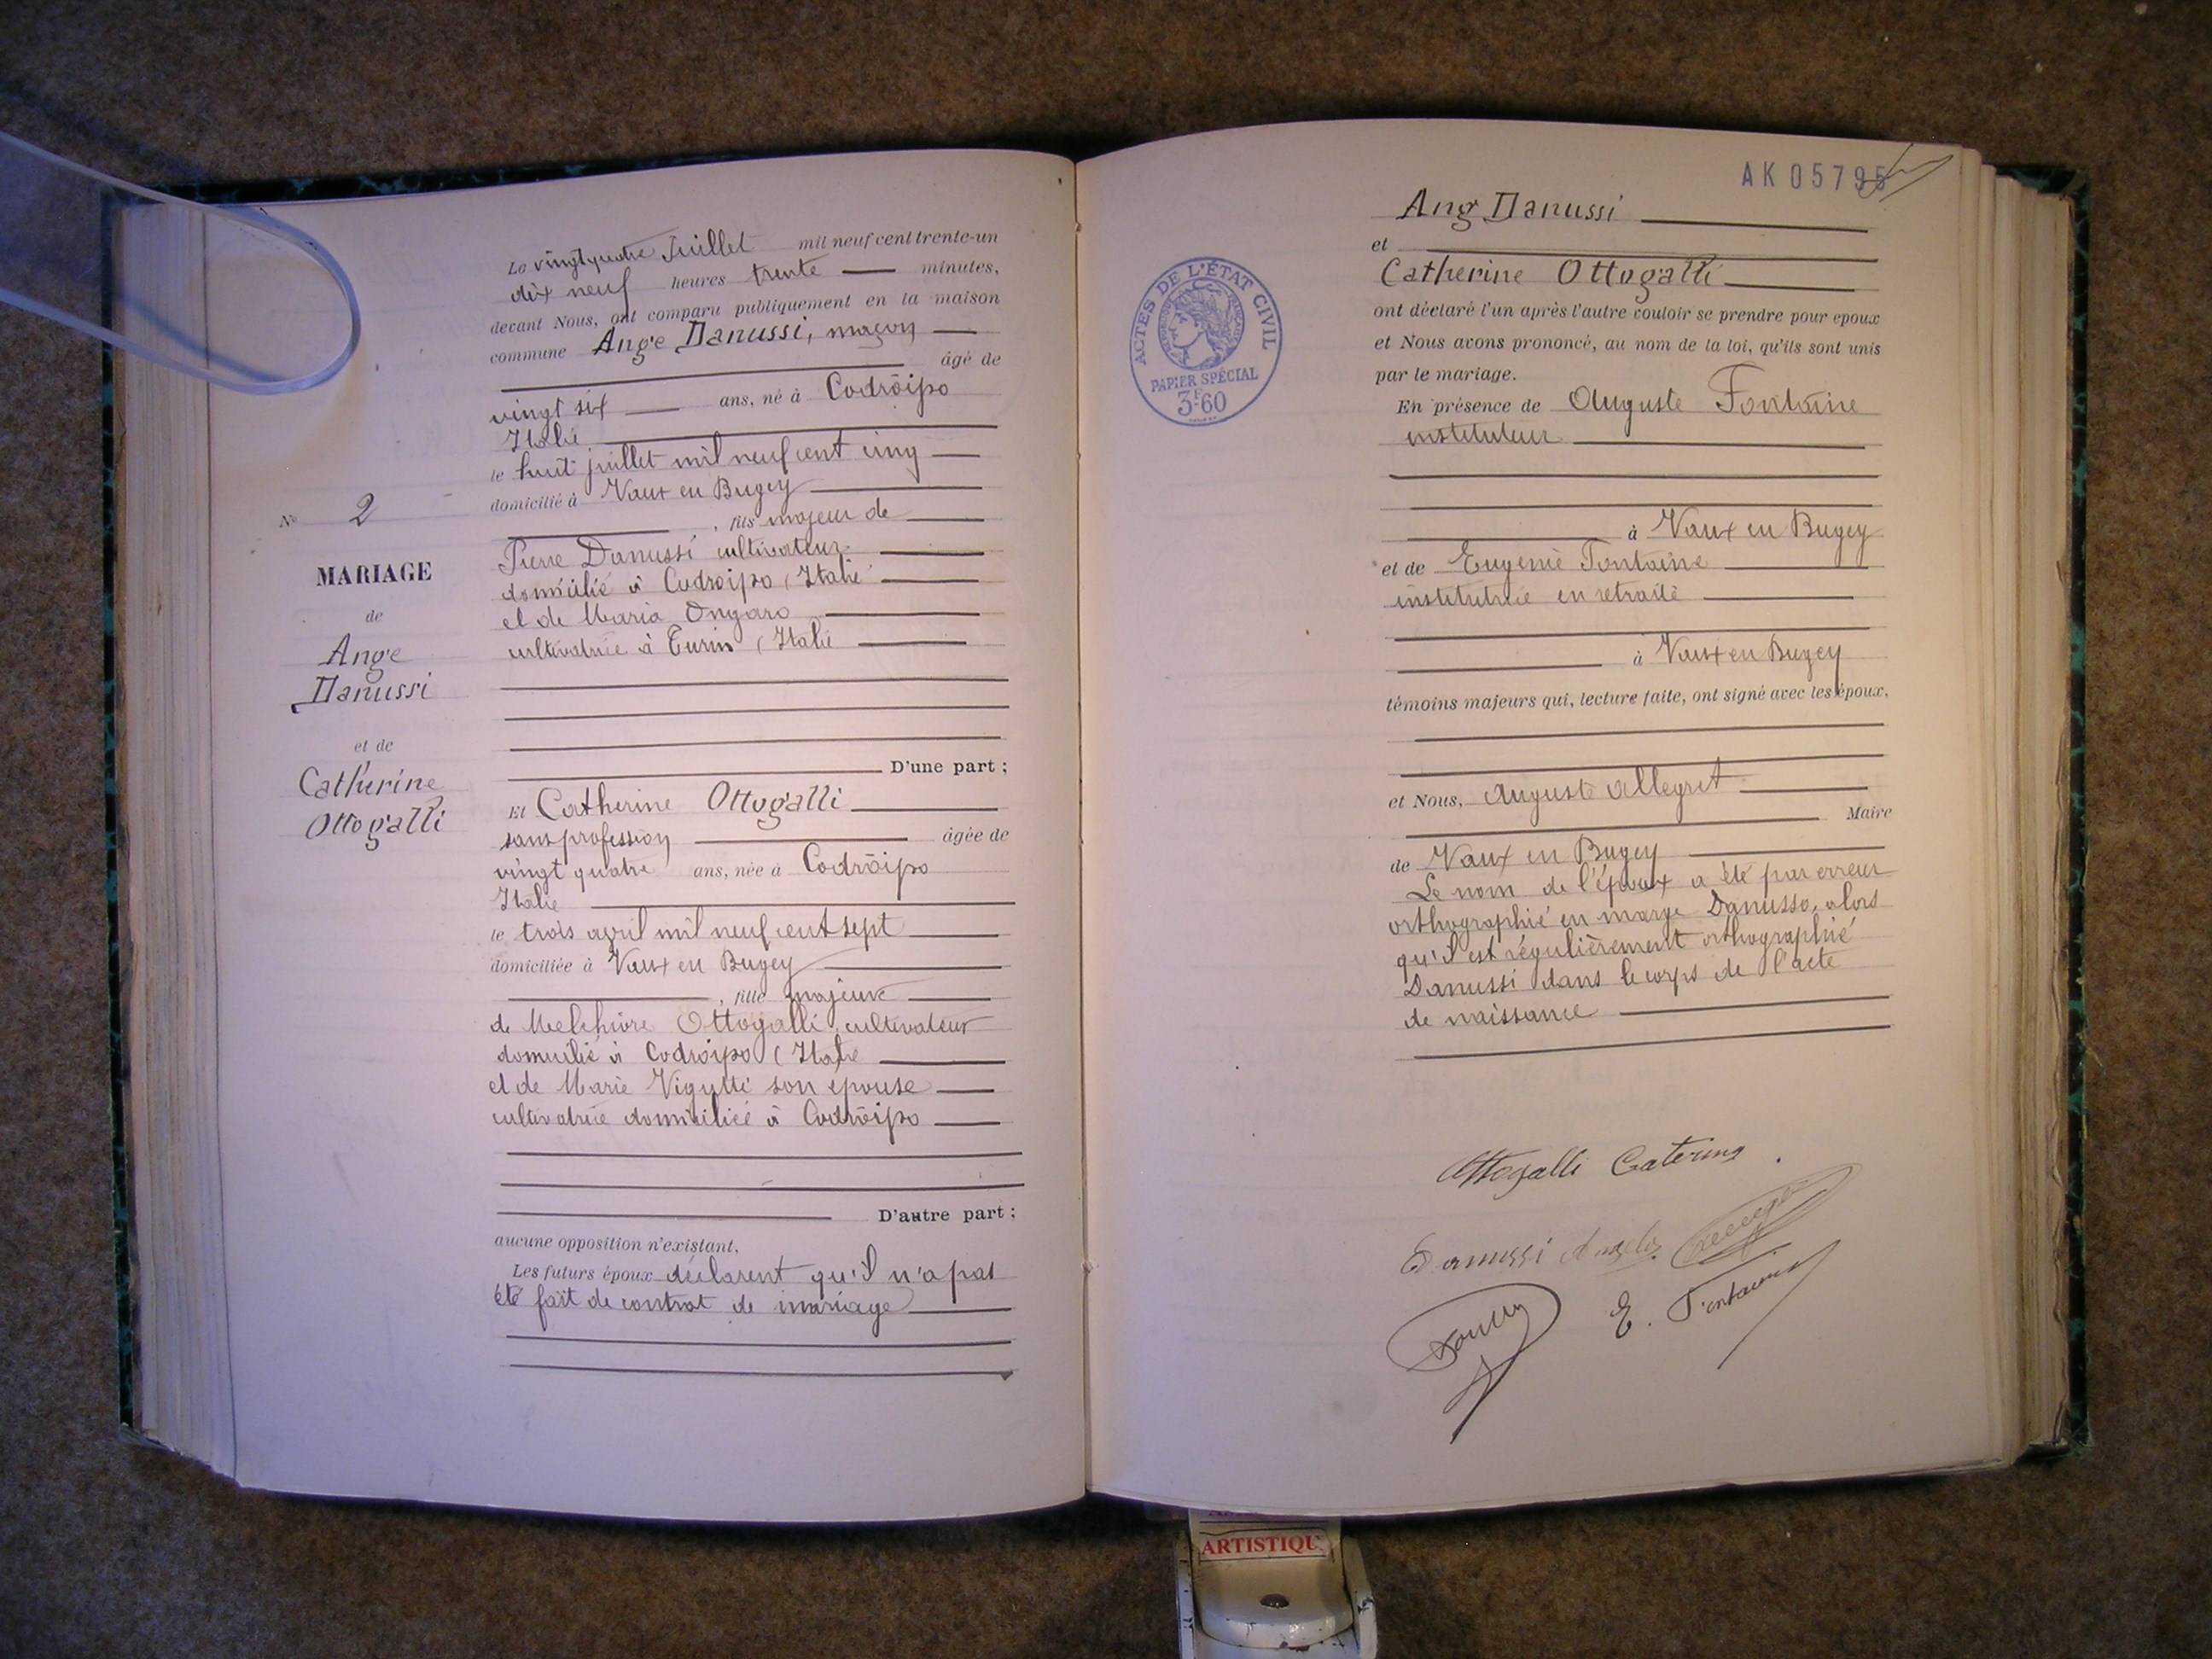 Le vingt quatre Juillet mil neuf cent trente-un
dix neuf heures trente minutes,
devant Nous, ont comparu publiquement en la maison
commune Ange Danussi, maçon
âgé de
vingt six ans, né à Codroïpo
Italie
le huit juillet mil neuf cent cinq
domicilié à Vaux en Bugey
, fils majeur de
Pierre Danussi cultivateur
domicilié à Codroipo (Italie
et de Maria Ongaro
cultivatrice à Turin (Italie
D'une part ;
Et Catherine Ottogalli
sans profession âgée de
vingt quatre ans, née à Codroïpo
Italie
le trois avril mil neuf cent sept
domiciliée à Vaux en Bugey
, fille majeure
de Melchiore Ottogalli, cultivateur
domicilié à Codroipo (Italie
et de Marie Vigutti son épouse
cultivatrice domiciliée à Codroïpo
D'autre part ;
aucune opposition n'existant,
Les futurs époux déclarent qu'il n'a pas
été fait de contrat de mariage
No 2
MARIAGE
de
Ange
Danussi
et de
Catherine
Ottogalli
AK 05795
Ang Danussi
et
Catherine Ottogalli
ont déclaré l'un après l'autre vouloir se prendre pour époux
et Nous avons prononcé, au nom de la loi, qu'ils sont unis
par le mariage.
En présence de Auguste Fontaine
instituteur
à Vaux en Bugey
et de Eugenie Fontaine
institutrice en retraite
à Vaux en Bugey
témoins majeurs qui, lecture faite, ont signé avec les époux,
et Nous, Auguste Allegret
Maire
de Vaux en Bugey
Le nom de l'époux a été par erreur
orthographié en marge Danusso, alors
qu'il est régulièrement orthographié
Danussi dans le corps de l'acte
de naissance
Ottogalli Caterina
Danussi Angelo
E. Fontaine
ACTES DE L'ÉTAT CIVIL
RÉPUBLIQUE FRANÇAISE
PAPIER SPÉCIAL
3F60
ARTISTIQU